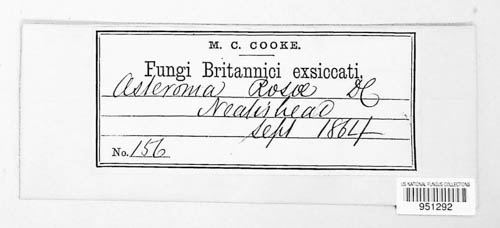 M. C. COOKE.
Fungi Britannici exsiccati.
Asteroma Rosœ DC
Neatishead
Sept 1864
No. 156
US NATIONAL FUNGUS COLLECTIONS
951292